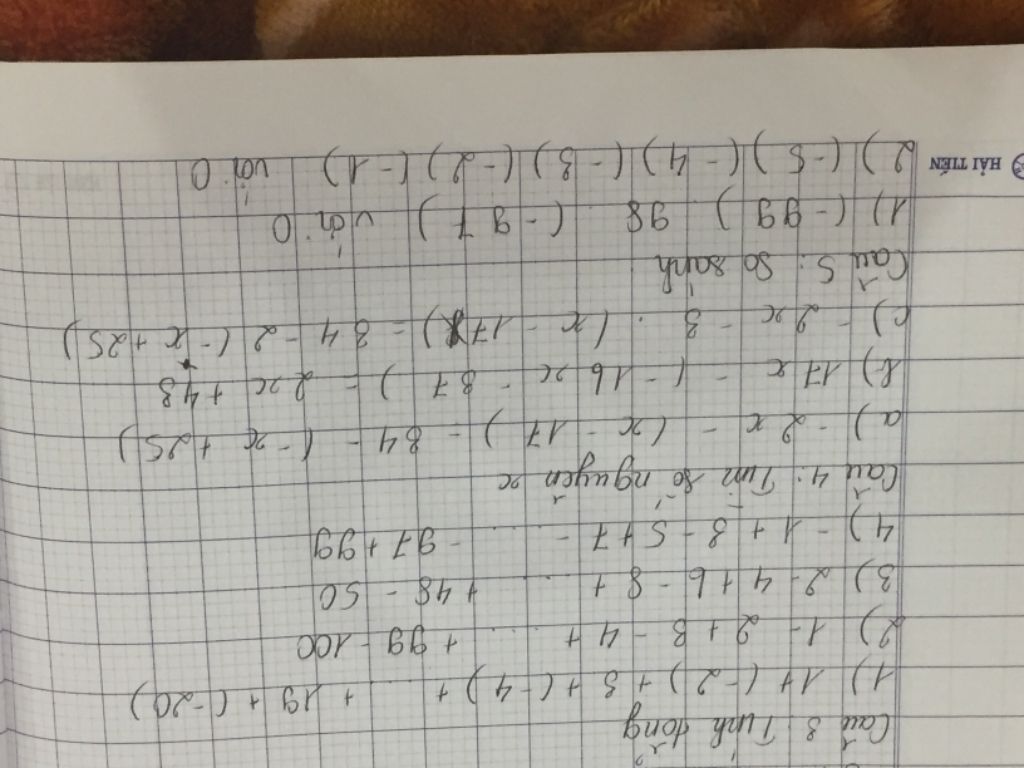 Câu 3: Tính tổng
1) 1 + (-2) + 3 + (-4) + ... + 19 + (-20)
2) 1 - 2 + 3 - 4 + ... + 99 - 100
3) 2 - 4 + 6 - 8 + ... + 48 - 50
4) - 1 + 3 - 5 + 7 - ... - 97 + 99
Câu 4: Tìm số nguyên x
a) - 2x - (x - 17) = 34 - (-x + 25)
b) 17x - (-16x - 37) = 2x + 43
c) - 2x - 3 . (x - 17) = 34 - 2 (-x + 25)
Câu 5: So sánh
1) (-99) . 98 . (-97) với 0
2) (-5) (-4) (-3) (-2) (-1) với 0
HẢI TIẾN